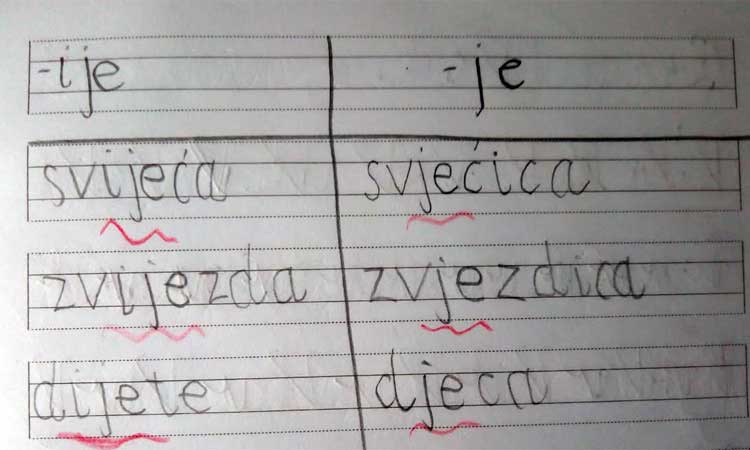 -ije -je
svijeća svjećica
zvijezda zvjezdica
dijete djeca